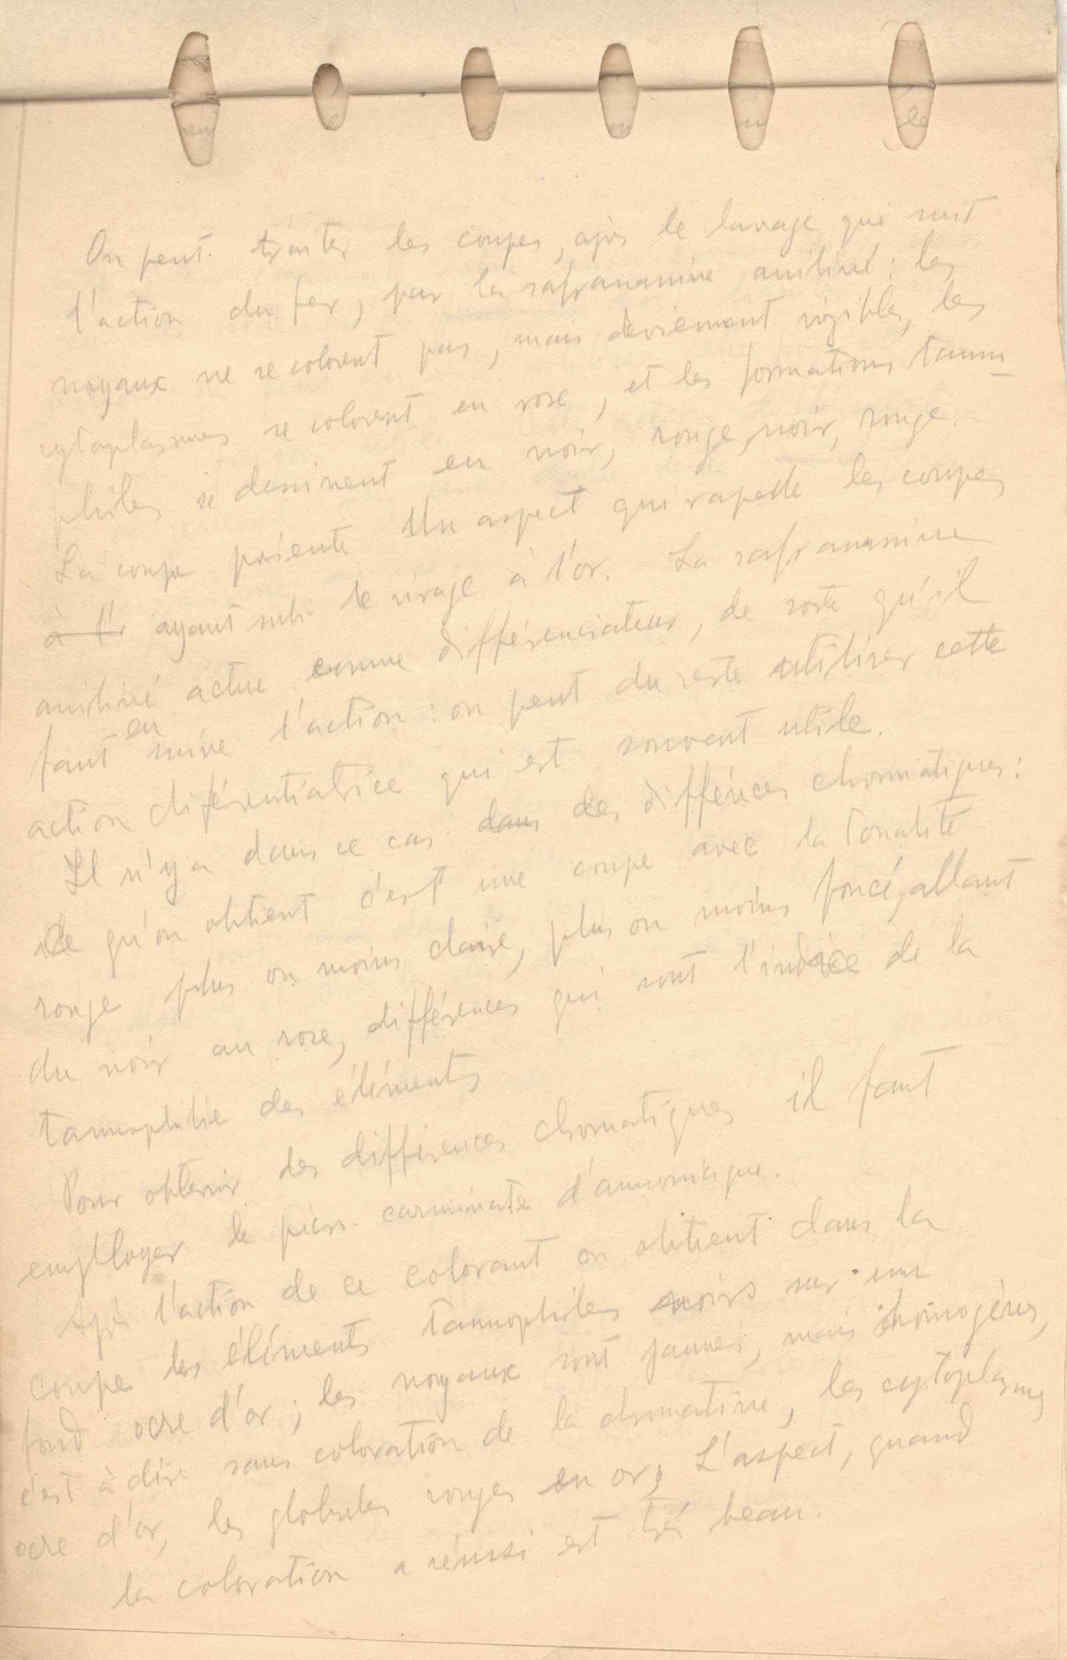 On peut traiter les coupes, après le lavage qui suit
l'action du fer, par la safranamine aniliné : les
noyaux ne se colorent pas, mais deviennent visibles, les
cytoplasmes se colorent en rose, et les formations tanno-
philes se dessinent en noir, rouge noir, rouge.
La coupe présente un aspect qui rapelle les coupes
à l'r ayant subi le virage à l'or. La safranamine
aniliné actue comme différenciateur, de sorte qu'il
en
faut suivre l'action : on peut du reste utiliser cette
action diférentiatrice qui est souvent utile.
Il n'y a dans ce cas dans des différences chromatiques :
Ce qu'on obtient c'est une coupe avec la tonalité
rouge plus ou moins claire, plus ou moins foncé, allant
du noir au rose, différences qui sont l'indice de la
tannophilie des éléments
Pour obtenir des différences chromatiques il faut
employer le picro-carminate d'ammoniaque.
Après l'action de ce colorant on obtient dans la
coupe les éléments tannophiles noirs sur un
fond ocre d'or ; les noyaux sont jaunes, mais homogènes,
c'est à dire sans coloration de la chromatine, les cytoplasmes
ocre d'or, les globules rouges en or, L'aspect, quand
la coloration a réussi est très beau.